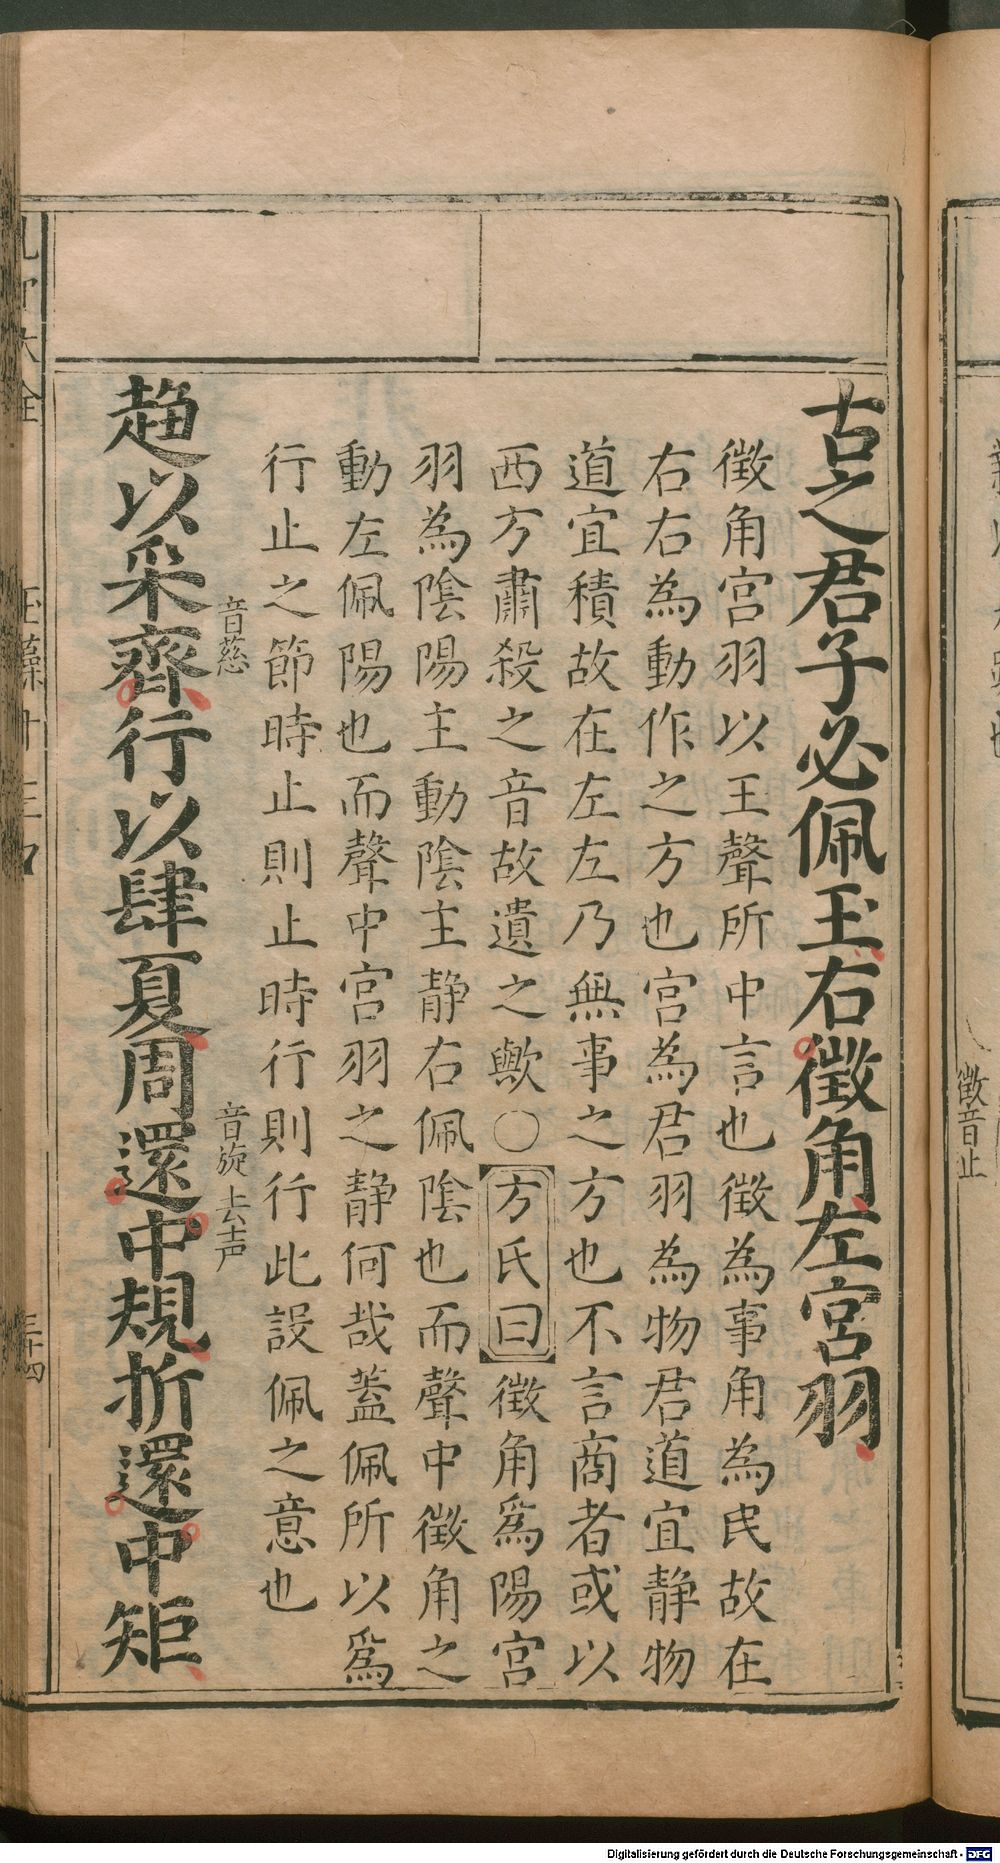 徵音止
古之君子必佩玉右徵角左宮羽
徵角宮羽以王聲所中言也徵為事角為民故在
右右為動作之方也宮為君羽為物君道宜静物
道宜積故在左左乃無事之方也不言商者或以
西方肅殺之音故遺之歟○方氏曰徵角爲陽宮
羽為陰陽主動陰主静右佩陰也而聲中徵角之
動左佩陽也而聲中宮羽之静何哉蓋佩所以爲
行止之節時止則止時行則行此設佩之意也
音慈
音旋去声
趨以采齊行以肆夏周還中規折還中矩
三十四
Digitalisierung gefördert durch die Deutsche Forschungsgemeinschaft - DFG